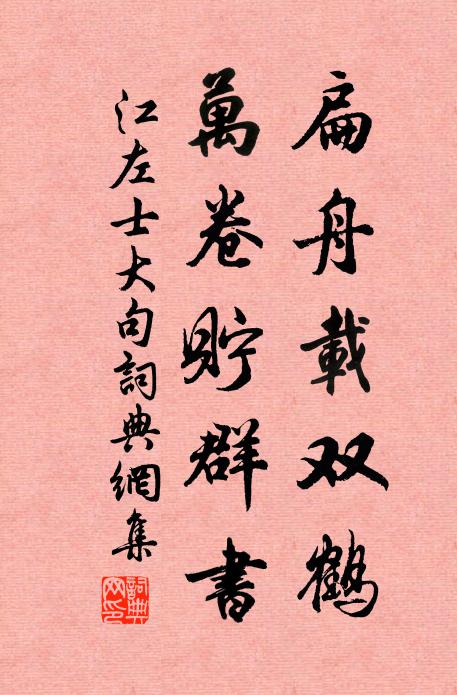 扁舟載双鶴
萬卷貯群書
江左士大句詞典網集
詞典網印